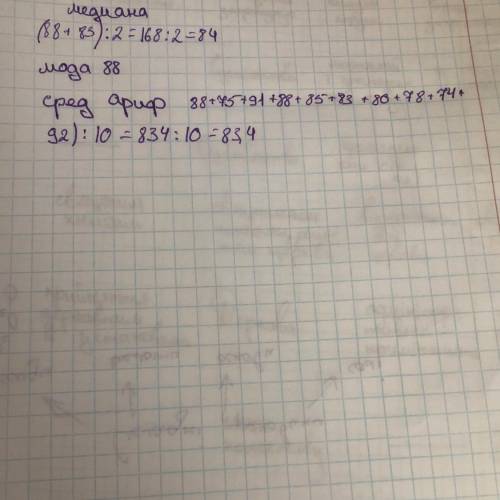 медиана
(88+85):2=168:2=84
мода 88
сред ариф 88+75+91+88+85+83+80+78+74+
92):10=834:10=83,4